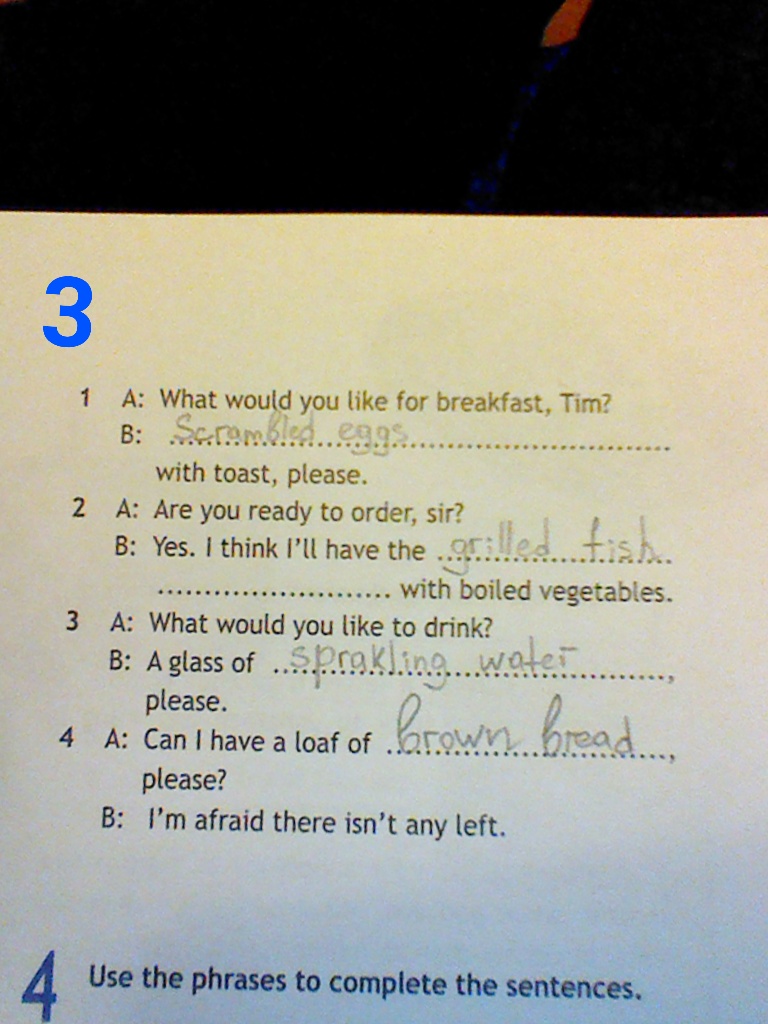 3
1 A: What would you like for breakfast, Tim?
B: Scrambled eggs
with toast, please.
2 A: Are you ready to order, sir?
B: Yes. I think I'll have the grilled fish
with boiled vegetables.
3 A: What would you like to drink?
B: A glass of sprakling water,
please.
4 A: Can I have a loaf of brown bread,
please?
B: I'm afraid there isn't any left.
4 Use the phrases to complete the sentences.